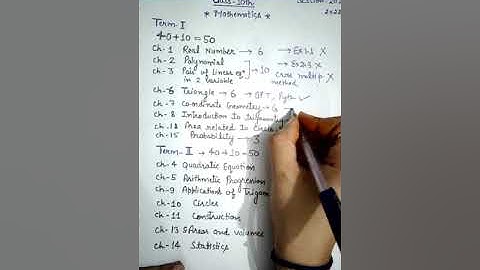 Class-10th
Session 202
2022
* Mathematics *
Term-I
40+10=50
Ch-1 Real Number → 6 → Ex1.1 X
Ch-2 Polynomial → Ex2.3 X
Ch-3 Pair of linear eqⁿ in 2 variable → 10 cross multip X method
Ch-6 Triangle → 6 → BPT, Pyth ✓
Ch-7 Co-ordinate Geometry → 6
Ch-8 Introduction to trigonometry
Ch-12 Area related To Circle
Ch-15 Probability → 3
Term-II → 40+10=50
Ch-4 Quadratic Equation
Ch-5 Arithmetic Progression
Ch-9 Applications of Trigono
Ch-10 Circles
Ch-11 Construction
Ch-13 SAreas and volumes
Ch-14 Statistics